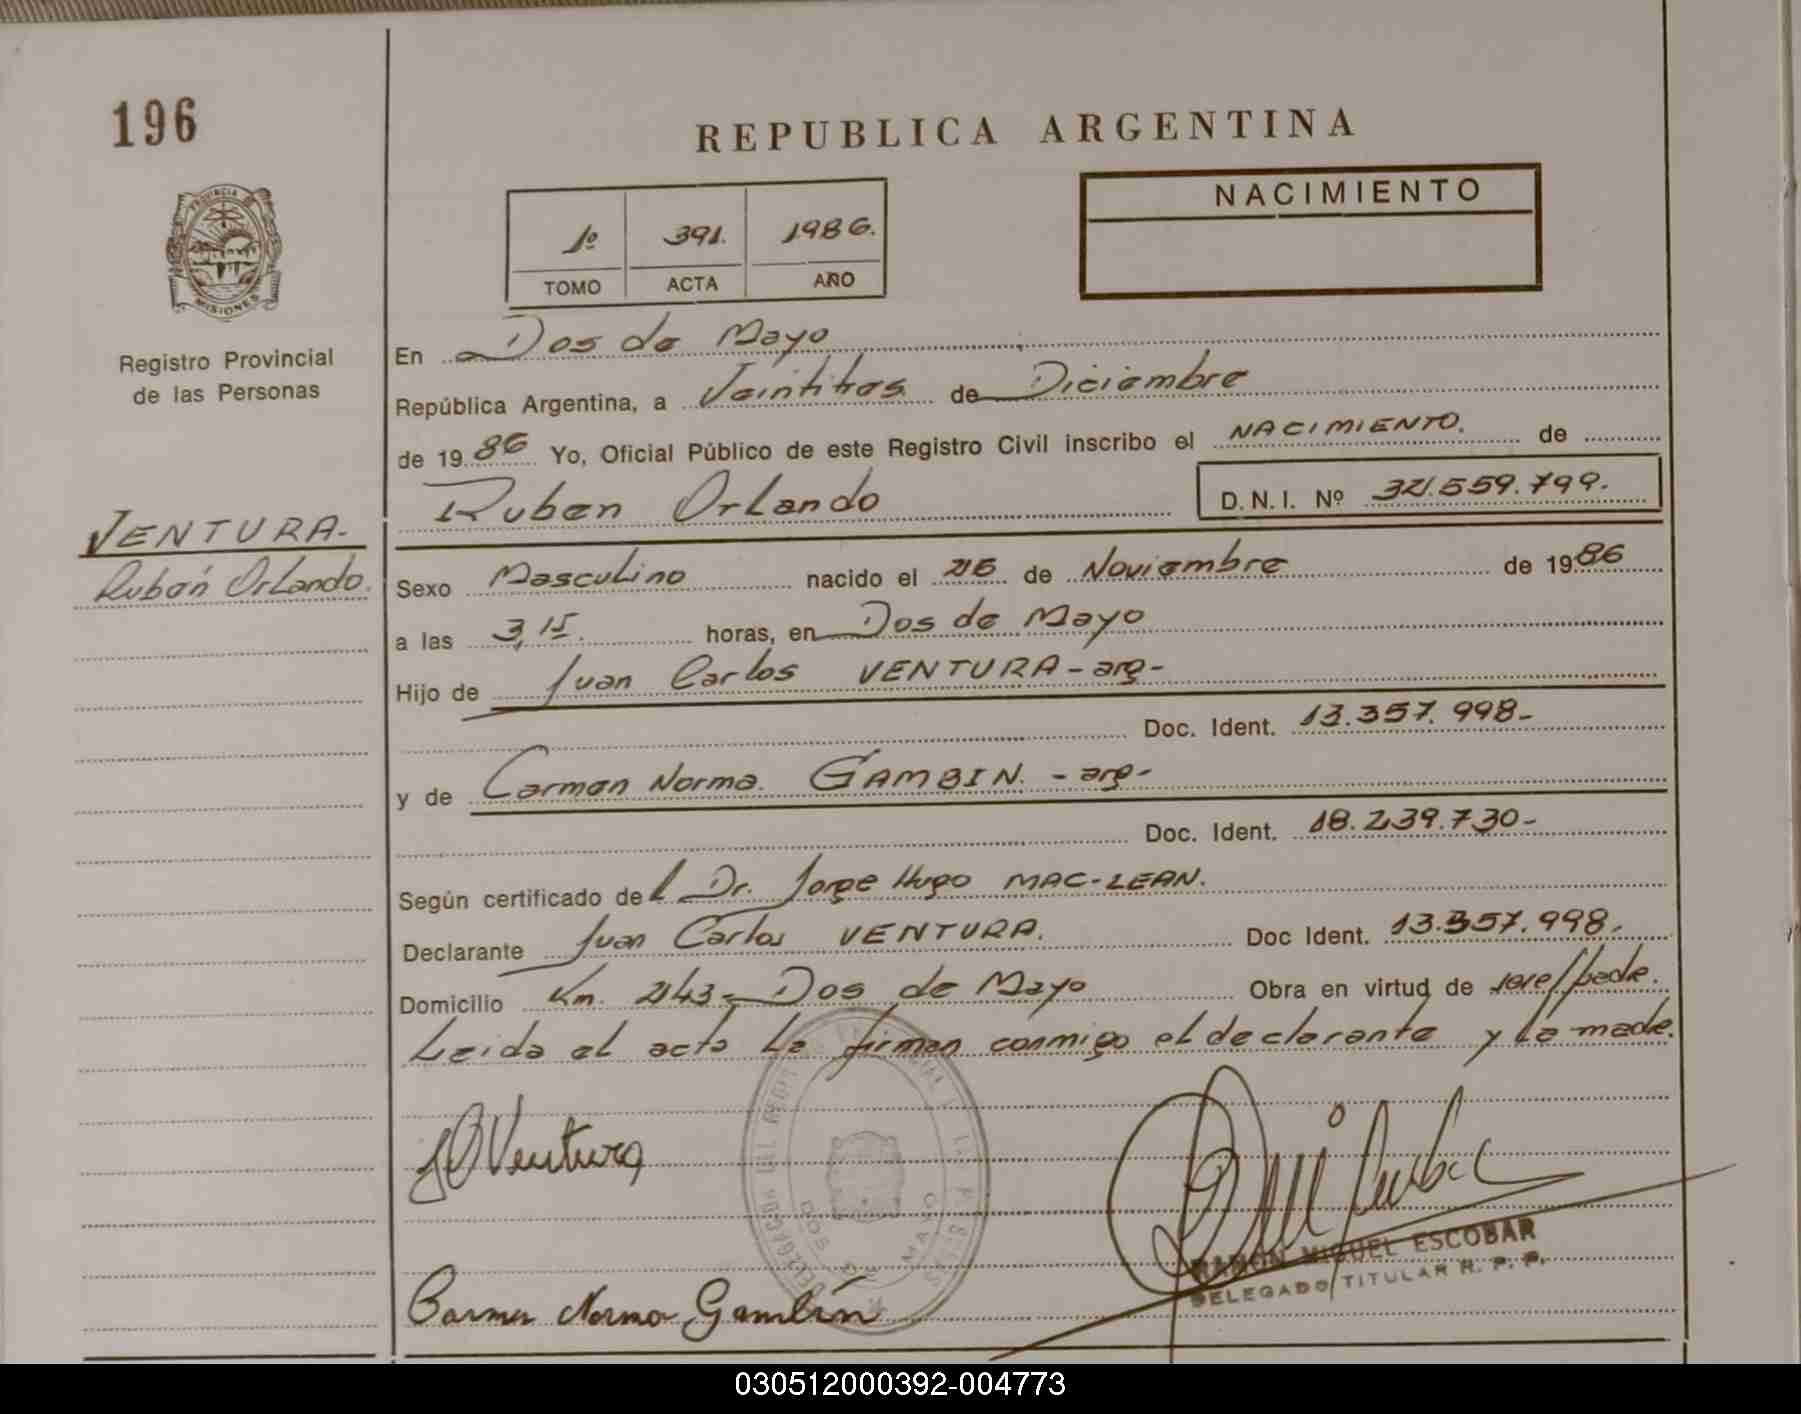 196
REPUBLICA ARGENTINA
PROVINCIA DE
MISIONES
Registro Provincial
de las Personas
1º 391. 1986.
TOMO ACTA AÑO
NACIMIENTO
En Dos de Mayo
República Argentina, a Veintitres de Diciembre
de 1986 Yo, Oficial Público de este Registro Civil inscribo el NACIMIENTO. de
Ruben Orlando D.N.I. Nº 32.559.799.
VENTURA-
Rubén Orlando.
Sexo Masculino nacido el 26 de Noviembre de 1986
a las 3,15. horas, en Dos de Mayo
Hijo de Juan Carlos VENTURA-arg-
Doc. Ident. 13.357.998-
y de Carmen Norma. GAMBIN. -arg-
Doc. Ident. 18.239.730-
Según certificado del Dr. Jorge Hugo MAC-LEAN.
Declarante Juan Carlos VENTURA. Doc Ident. 13.357.998.
Domicilio Km. 243- Dos de Mayo Obra en virtud de padre.
Leida el acta la firman conmigo el declarante y la madre.
Ventura
RAMON MIGUEL ESCOBAR
DELEGADO TITULAR R. P. P.
DOS DE MAYO
Carmen Norma Gambín
030512000392-004773